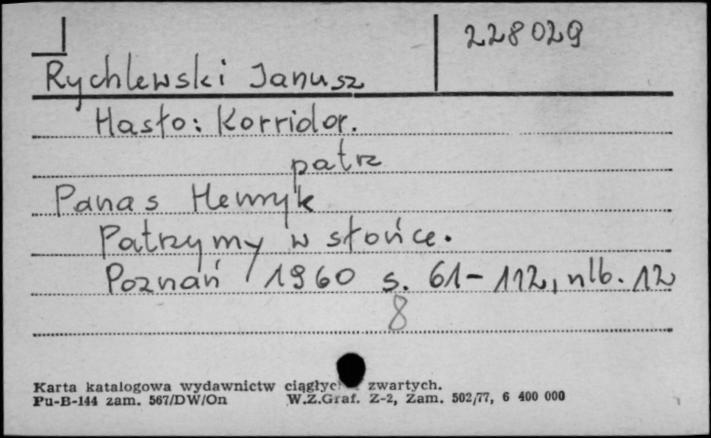 228029
Rychlewski Janusz
Hasło: Korridor.
patrz
Panas Henryk
Patrzymy w słońce.
Poznań 1960 s. 61-112, nlb. 12
8
Karta katalogowa wydawnictw zwartych.
Pu-B-144 zam. 567/DW/On W.Z.Graf. Z-2, Zam. 502/77, 6 400 000